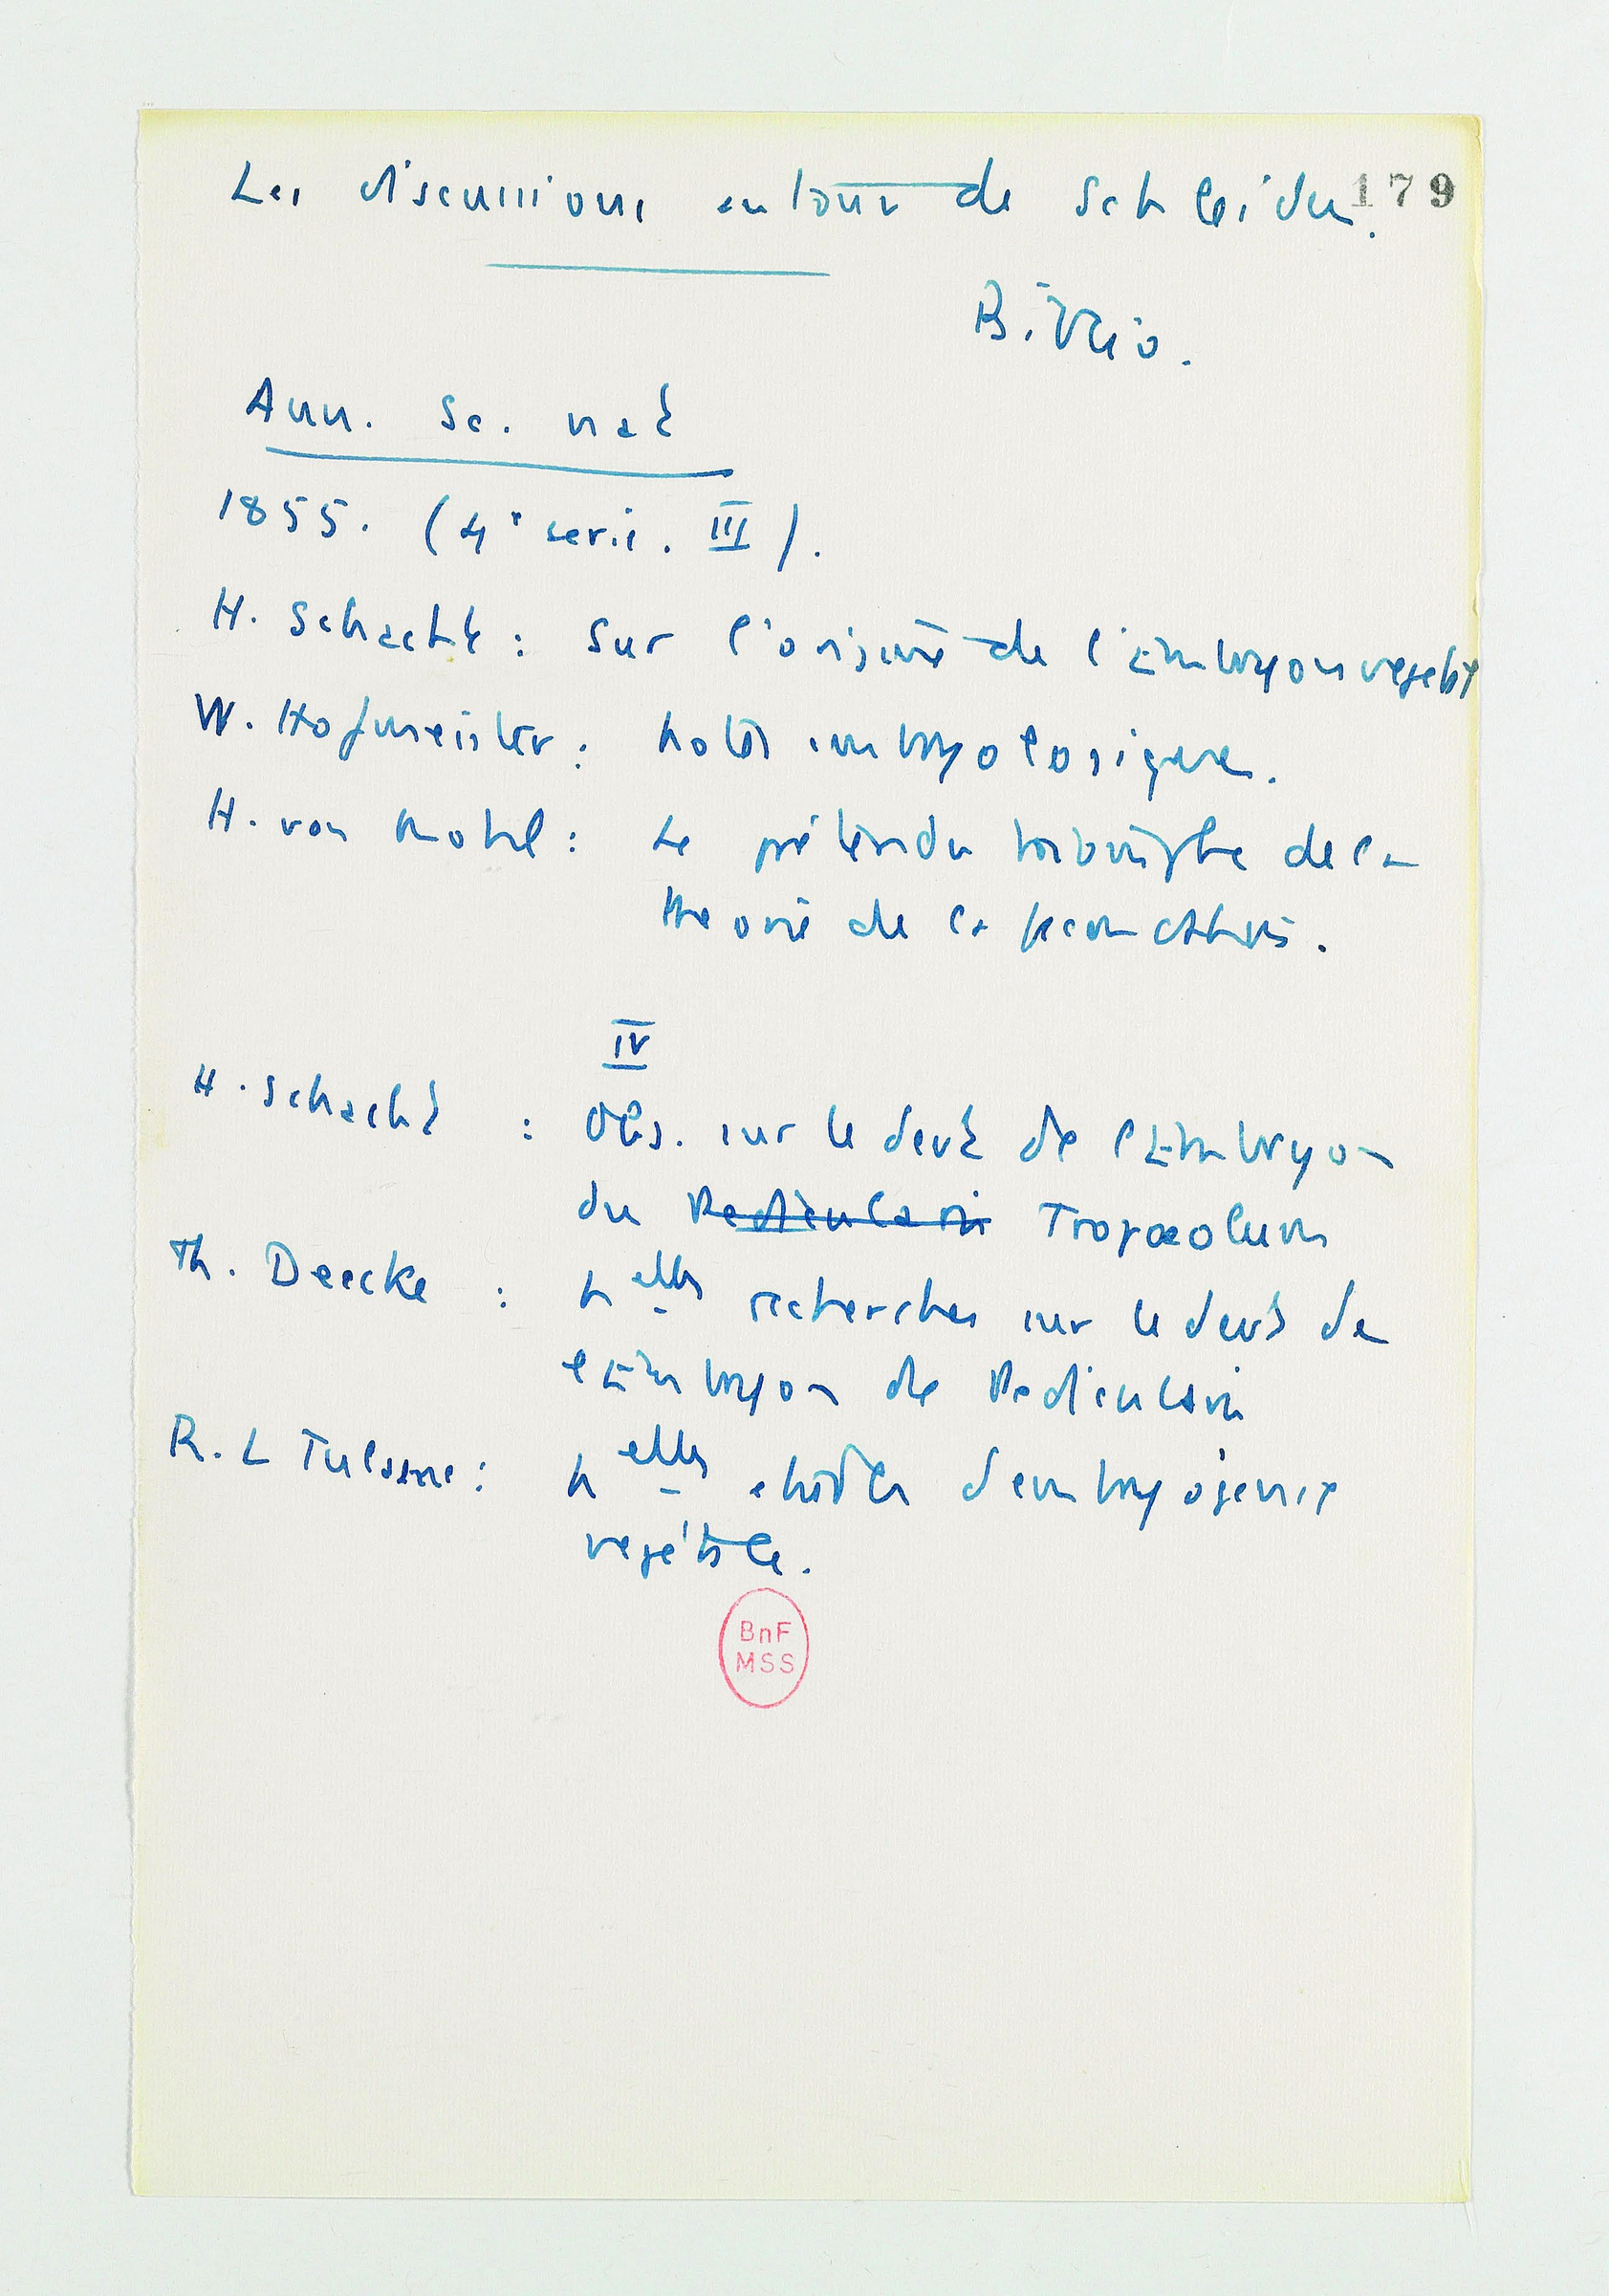 Les discussions autour de Schleiden.
179
Biblio.
Ann. Sc. nat
1855. (4e serie. III).
H. Schacht : Sur l'origine de l'Embryon vegetal
W. Hofmeister : Notes embryologiques.
H. von Mohl : Le prétendu triomphe de la
theorie de la fecondation.
IV
H. Schacht : Obs. sur le devt de l'Embryon
du Pedicularis Tropæolum
Th. Deecke : Nelles recherches sur le devt de
l'Embryon de Pedicularis
R. L Tulasne : Nelles etudes d'embryogenie
vegétale.
BnF
MSS